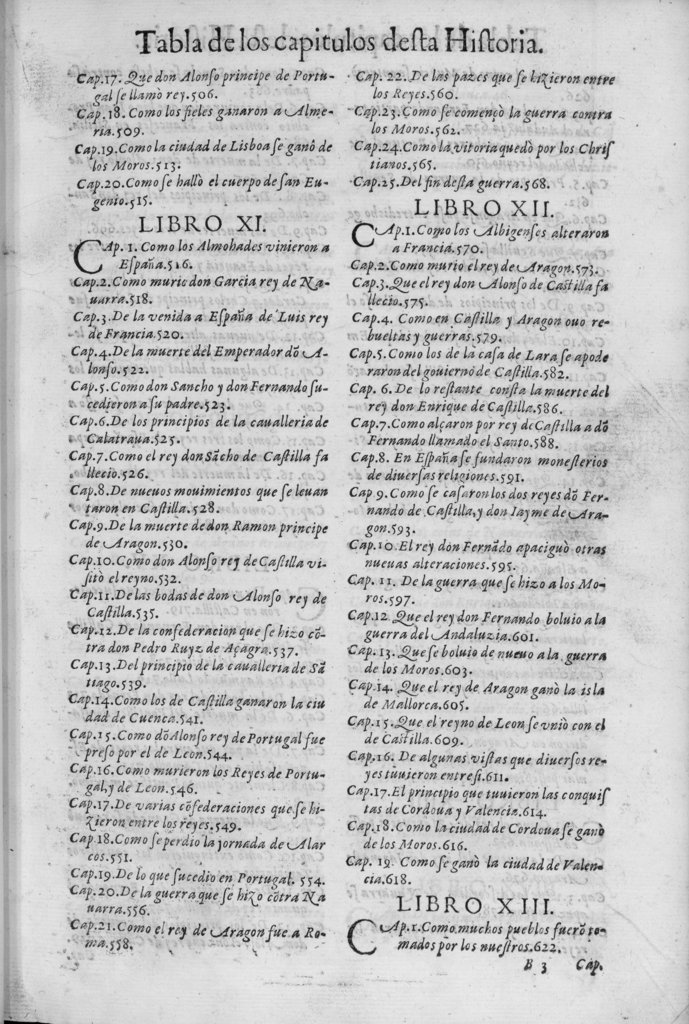 Tabla de los capitulos desta Historia.
Cap.17. Que don Alonso principe de Portu-
gal se llamò rey.506.
Cap.18. Como los fieles ganaron a Alme-
ria.509.
Cap.19.Como la ciudad de Lisboa se ganò de
los Moros.513.
Cap.20.Como se hallò el cuerpo de san Eu-
genio.515.
LIBRO XI.
CAp. 1. Como los Almohades vinieron a
España.516.
Cap.2.Como murio don Garcia rey de Na-
uarra.518.
Cap.3. De la venida a España de Luis rey
de Francia.520.
Cap.4.De la muerte del Emperador dõ A-
lonso.522.
Cap.5.Como don Sancho y don Fernando su-
cedieron a su padre.523.
Cap.6.De los principios de la caualleria de
Calatraua.525.
Cap.7.Como el rey don Sãcho de Castilla fa
llecio.526.
Cap.8.De nueuos mouimientos que se leuan
taron en Castilla.528.
Cap.9.De la muerte de don Ramon principe
de Aragon.530.
Cap.10.Como don Alonso rey de Castilla vi-
sitò el reyno.532.
Cap.11.De las bodas de don Alonso rey de
Castilla.535.
Cap.12.De la confederacion que se hizo cõ-
tra don Pedro Ruyz de Açagra.537.
Cap.13.Del principio de la caualleria de Sã
tiago.539.
Cap.14.Como los de Castilla ganaron la ciu
dad de Cuenca.541.
Cap.15.Como dõ Alonso rey de Portugal fue
preso por el de Leon.544.
Cap.16.Como murieron los Reyes de Portu-
gal,y de Leon.546.
Cap.17.De varias cõfederaciones que se hi-
zieron entre los reyes.549.
Cap.18.Como se perdio la jornada de Alar
cos.551.
Cap.19.De lo que sucedio en Portugal. 554.
Cap.20.De la guerra que se hizo cõtra Na
uarra.556.
Cap.21.Como el rey de Aragon fue a Ro-
ma.558.
Cap. 22. De las pazes que se hizieron entre
los Reyes.560.
Cap.23.Como se començò la guerra contra
los Moros.562.
Cap.24.Como la vitoria quedò por los Chris
tianos.565.
Cap.25.Del fin desta guerra.568.
LIBRO XII.
CAp.1.Como los Albigenses alteraron
a Francia.570.
Cap.2.Como murio el rey de Aragon.573.
Cap.3.Que el rey don Alonso de Castilla fa
llecio.575.
Cap.4. Como en Castilla y Aragon ouo re-
bueltas y guerras.579.
Cap.5.Como los de la casa de Lara se apode
raron del gouierno de Castilla.582.
Cap. 6. De lo restante consta la muerte del
rey don Enrique de Castilla.586.
Cap.7.Como alçaron por rey de Castilla a dõ
Fernando llamado el Santo.588.
Cap.8. En España se fundaron monesterios
de diuersas religiones.591.
Cap 9.Como se casaron los dos reyes dõ Fer-
nando de Castilla,y don Iayme de Ara-
gon.593.
Cap.10.El rey don Fernãdo apaciguò otras
nueuas alteraciones.595.
Cap. 11. De la guerra que se hizo a los Mo-
ros.597.
Cap.12 Que el rey don Fernando boluio a la
guerra del Andaluzia.601.
Cap. 13. Que se boluio de nueuo a la guerra
de los Moros.603.
Cap.14. Que el rey de Aragon ganò la isla
de Mallorca.605.
Cap.15. Que el reyno de Leon se vniò con el
de Castilla.609.
Cap.16. De algunas vistas que diuersos re-
yes tuuieron entre si.611.
Cap.17.El principio que tuuieron las conquis
tas de Cordoua y Valencia.614.
Cap.18.Como la ciudad de Cordoua se ganò
de los Moros.616.
Cap. 19. Como se ganò la ciudad de Valen-
cia.618.
LIBRO XIII.
CAp.1.Como muchos pueblos fuerõ to-
mados por los nuestros.622.
B 3 Cap.